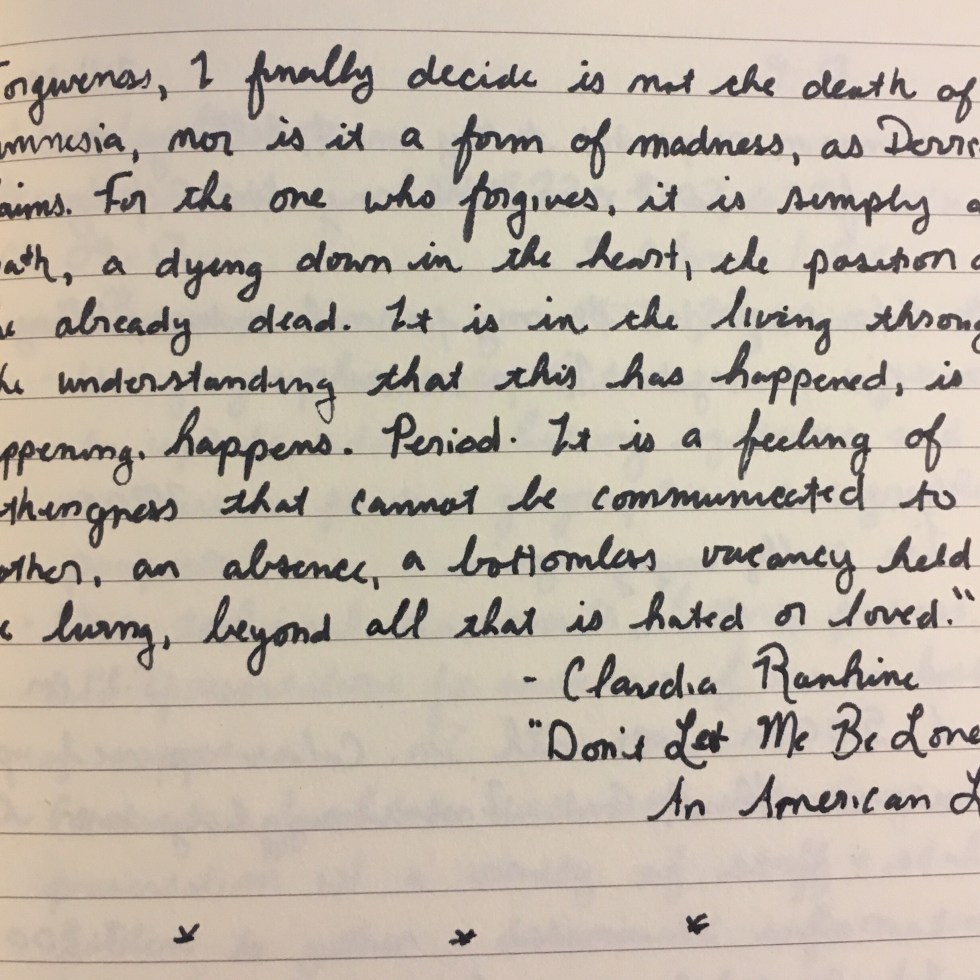 orgiveness, I finally decide is not the death of
mnesia, nor is it a form of madness, as Derri
aims. For the one who forgives, it is simply a
ath, a dying down in the heart, the position o
e already dead. It is in the living throug
he understanding that this has happened, is
ppening, happens. Period. It is a feeling of
thingness that cannot be communicated to
other, an absence, a bottomless vacancy held
e living, beyond all that is hated or loved."
- Claudia Rankine
"Don't Let Me Be Lone
An American L
* * *